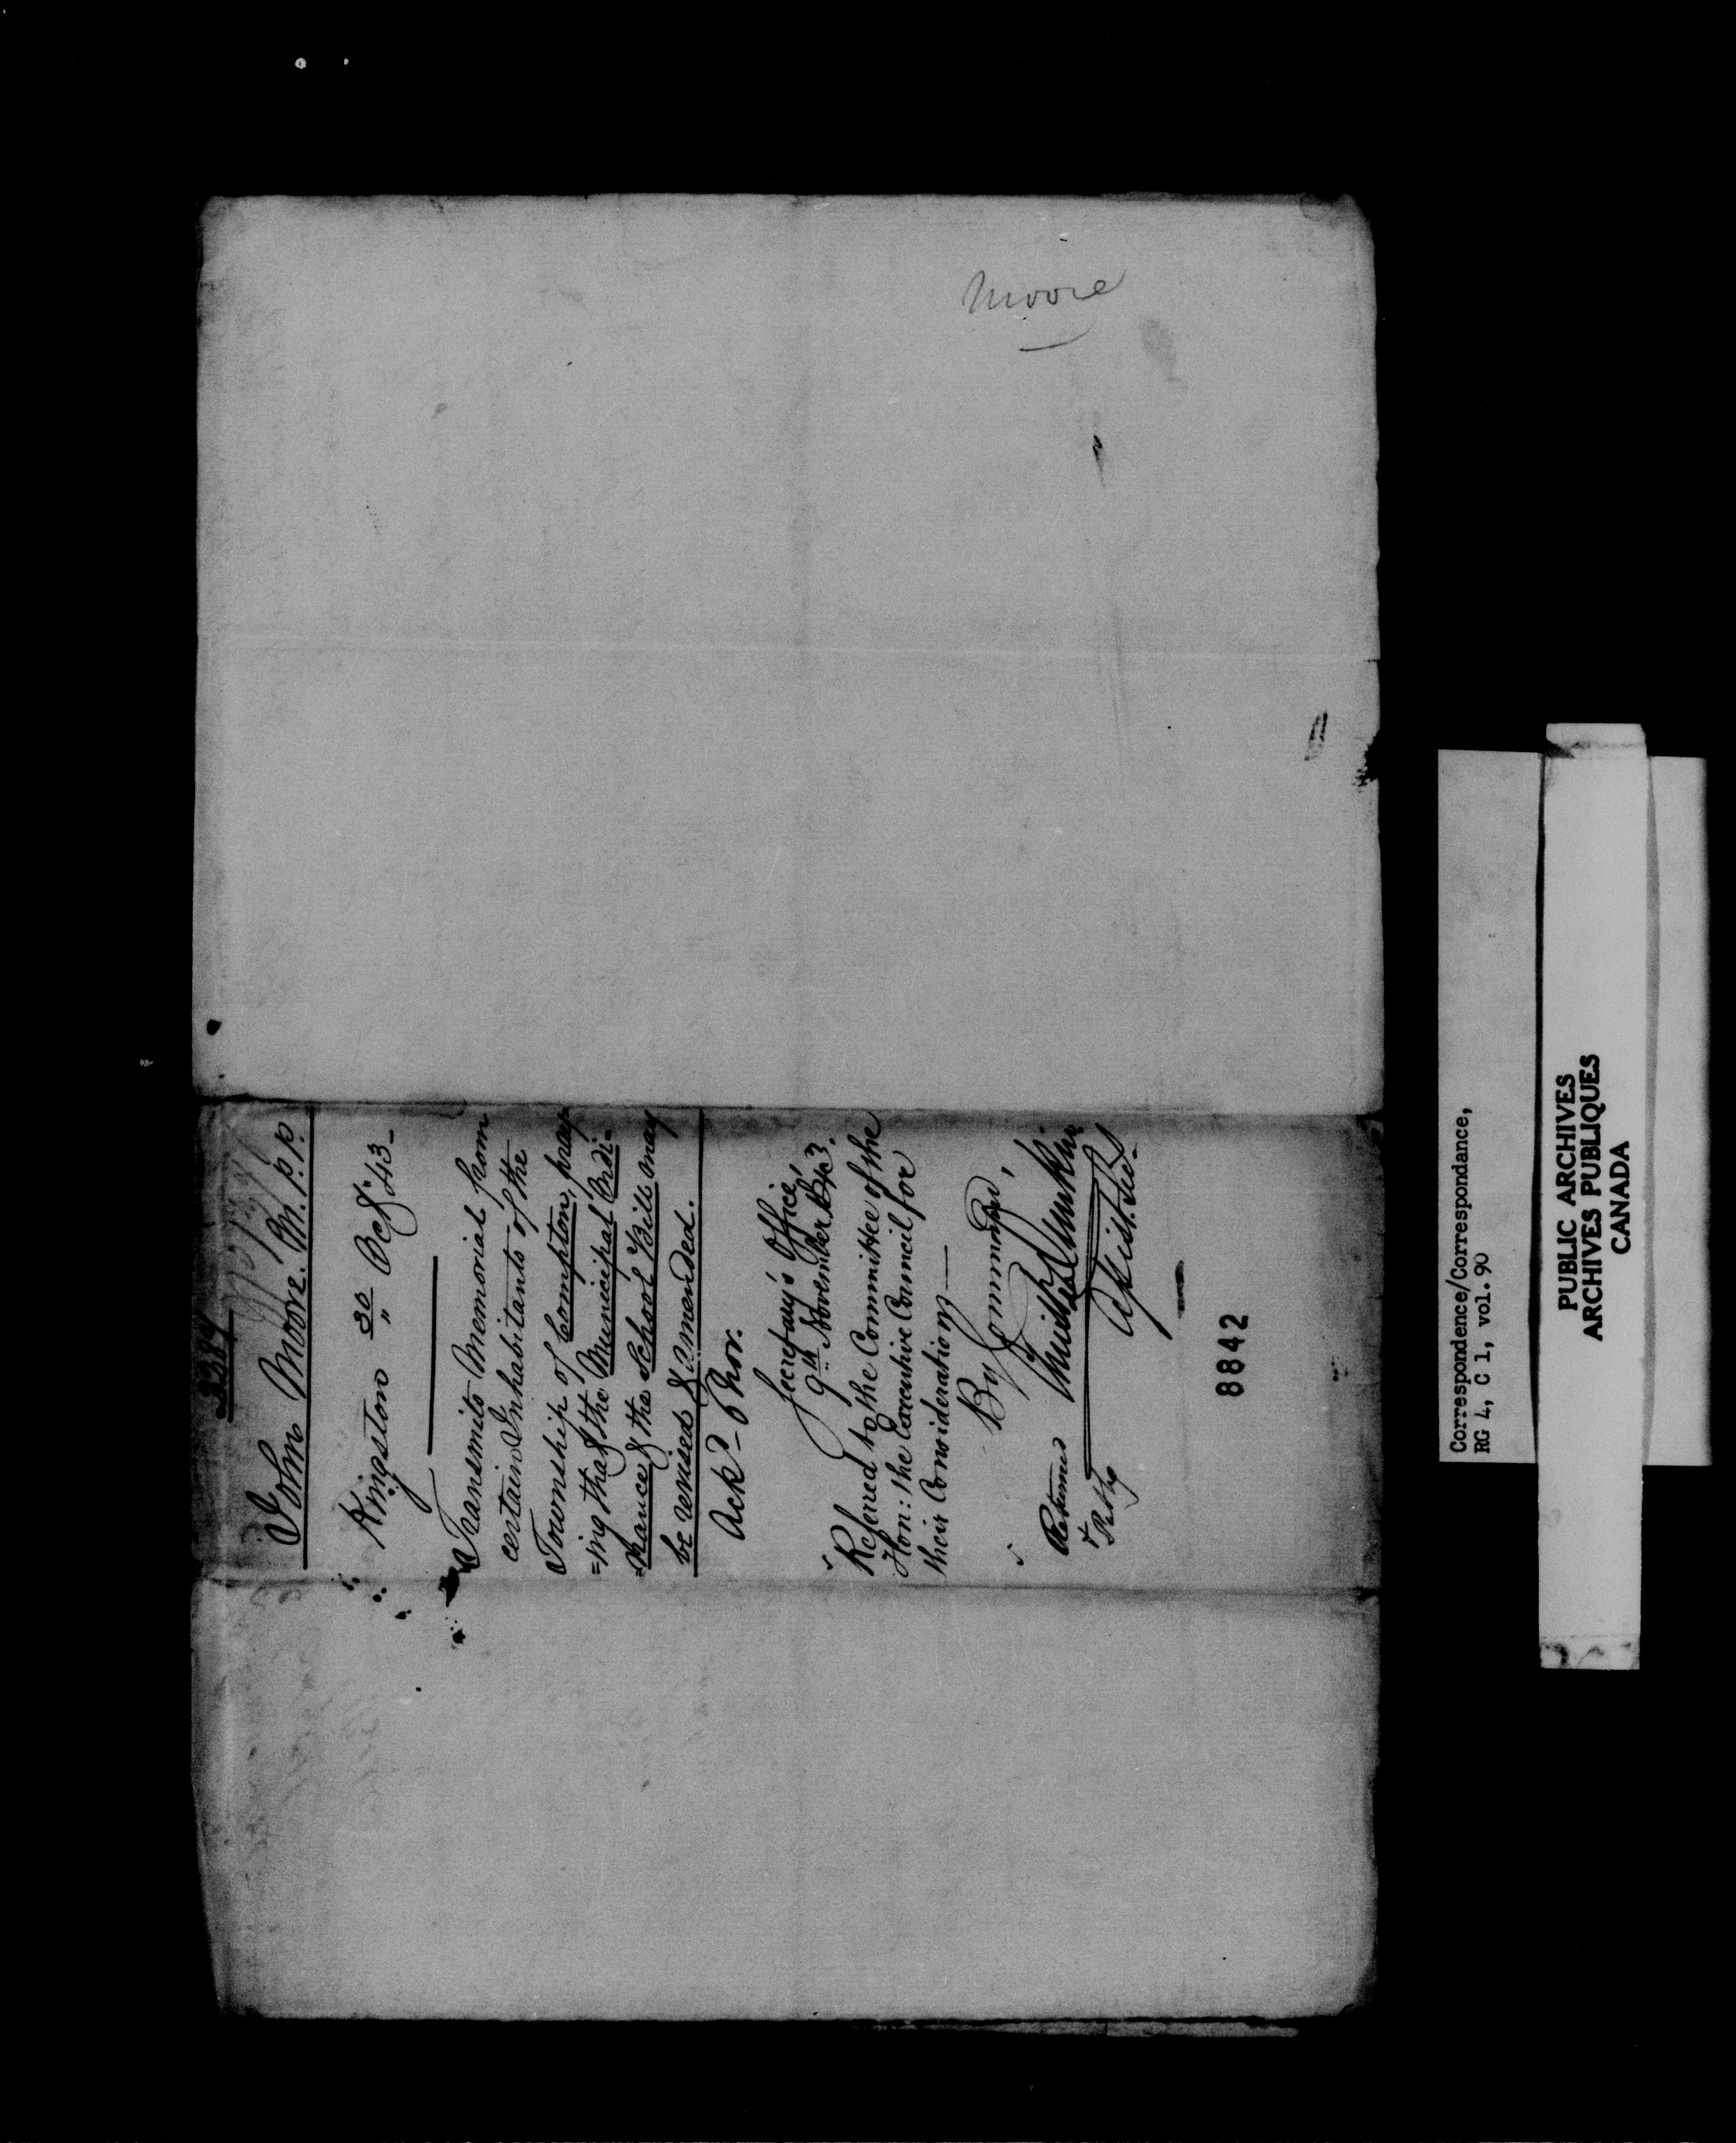 Moore
3384
John Moore. M.P.P.
Kingston 30 Oct. 43-
Transmits Memorial from
certain Inhabitants of the
Township of Compton, pray
=ing that the Municipal Ordi-
=nance & the School Bills may
be revised & amended.
Ackd - 6 Nov.
Secretary's Office,
9th November 1843.
Referred to the Committee of the
Hon: the Executive Council for
their Consideration —
By Command,
Assist. Sec.
Returned
8842
Correspondence/Correspondance,
RG 4, C 1, vol. 90
PUBLIC ARCHIVES
ARCHIVES PUBLIQUES
CANADA